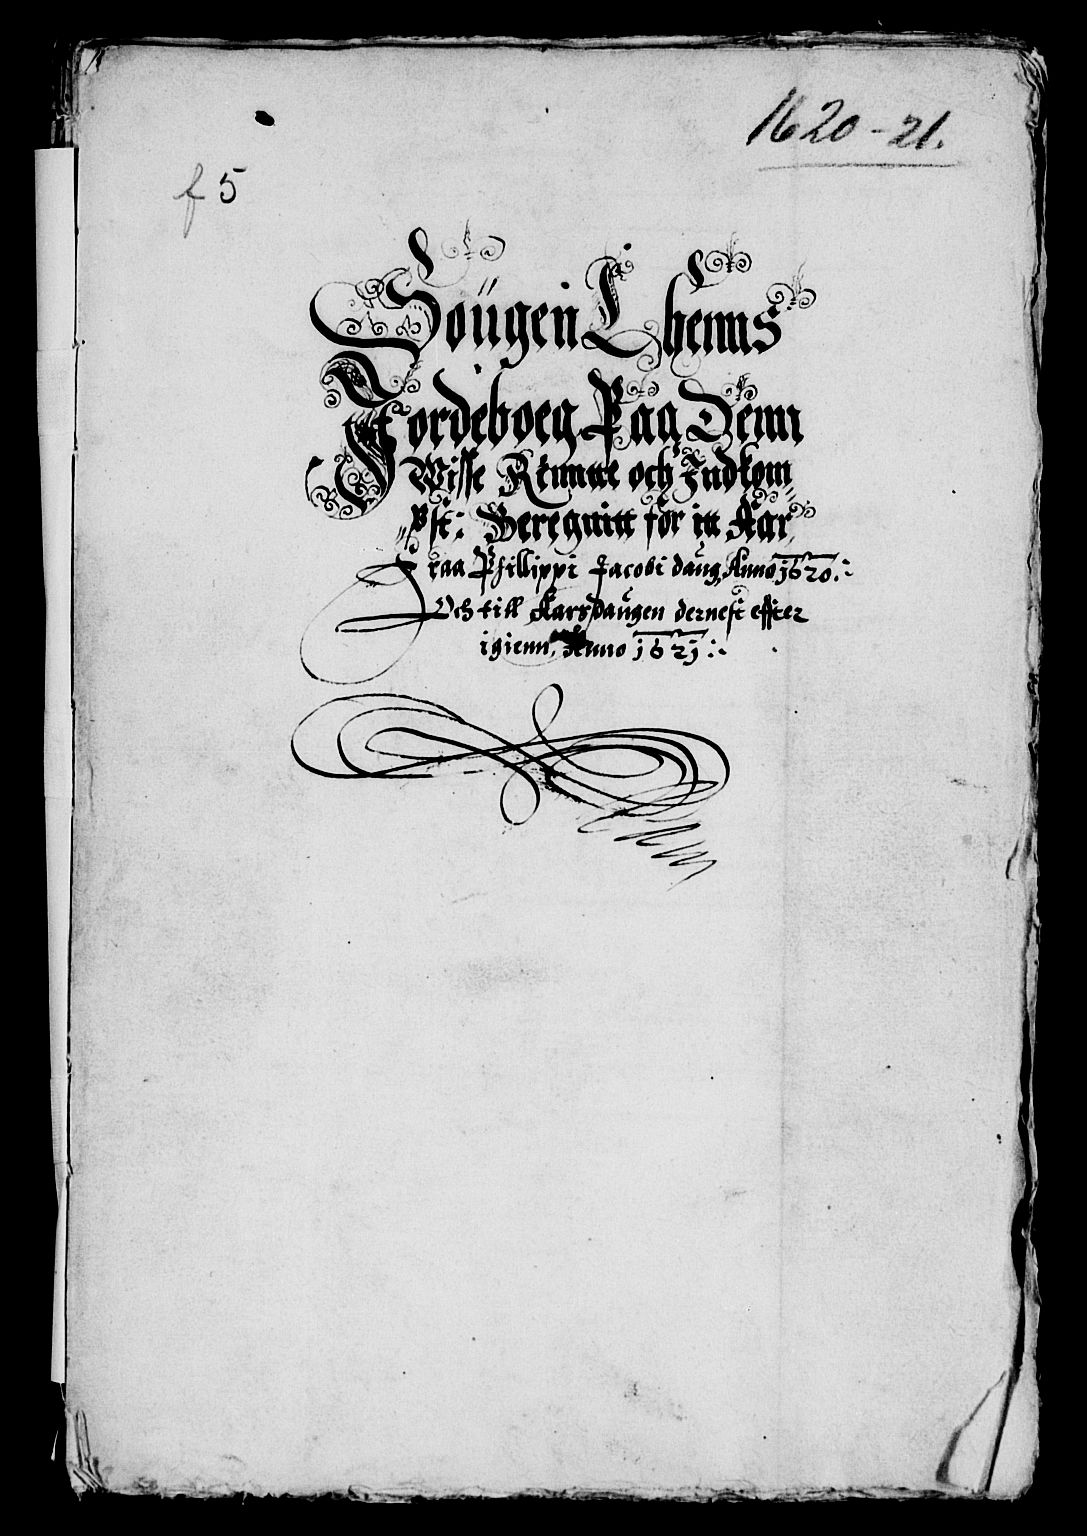 1620-21.
f 5
Soügen Lhenns
Jordeboeg Paa Denn
Wisse Rennte och Indkom„
„pst: Beregnitt för itt Aar,
Fraa Phillippi Jacobi daug, Anno 1620.
Och till Aarsdaugen dernest effter
igienn, Anno 1621